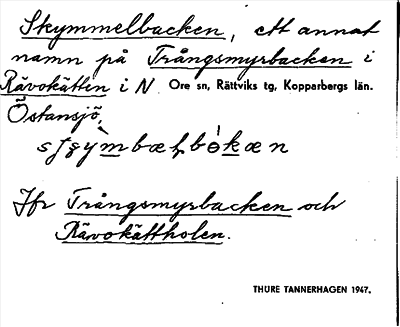 Skymmelbacken, ett annat
namn på Trångsmyrbacken i
Rävokätten i N. Ore sn, Rättviks tg, Kopparbergs län.
Östansjö,
Jfr Trångsmyrbacken och
Rävokättholen.
THURE TANNERHAGEN 1947.